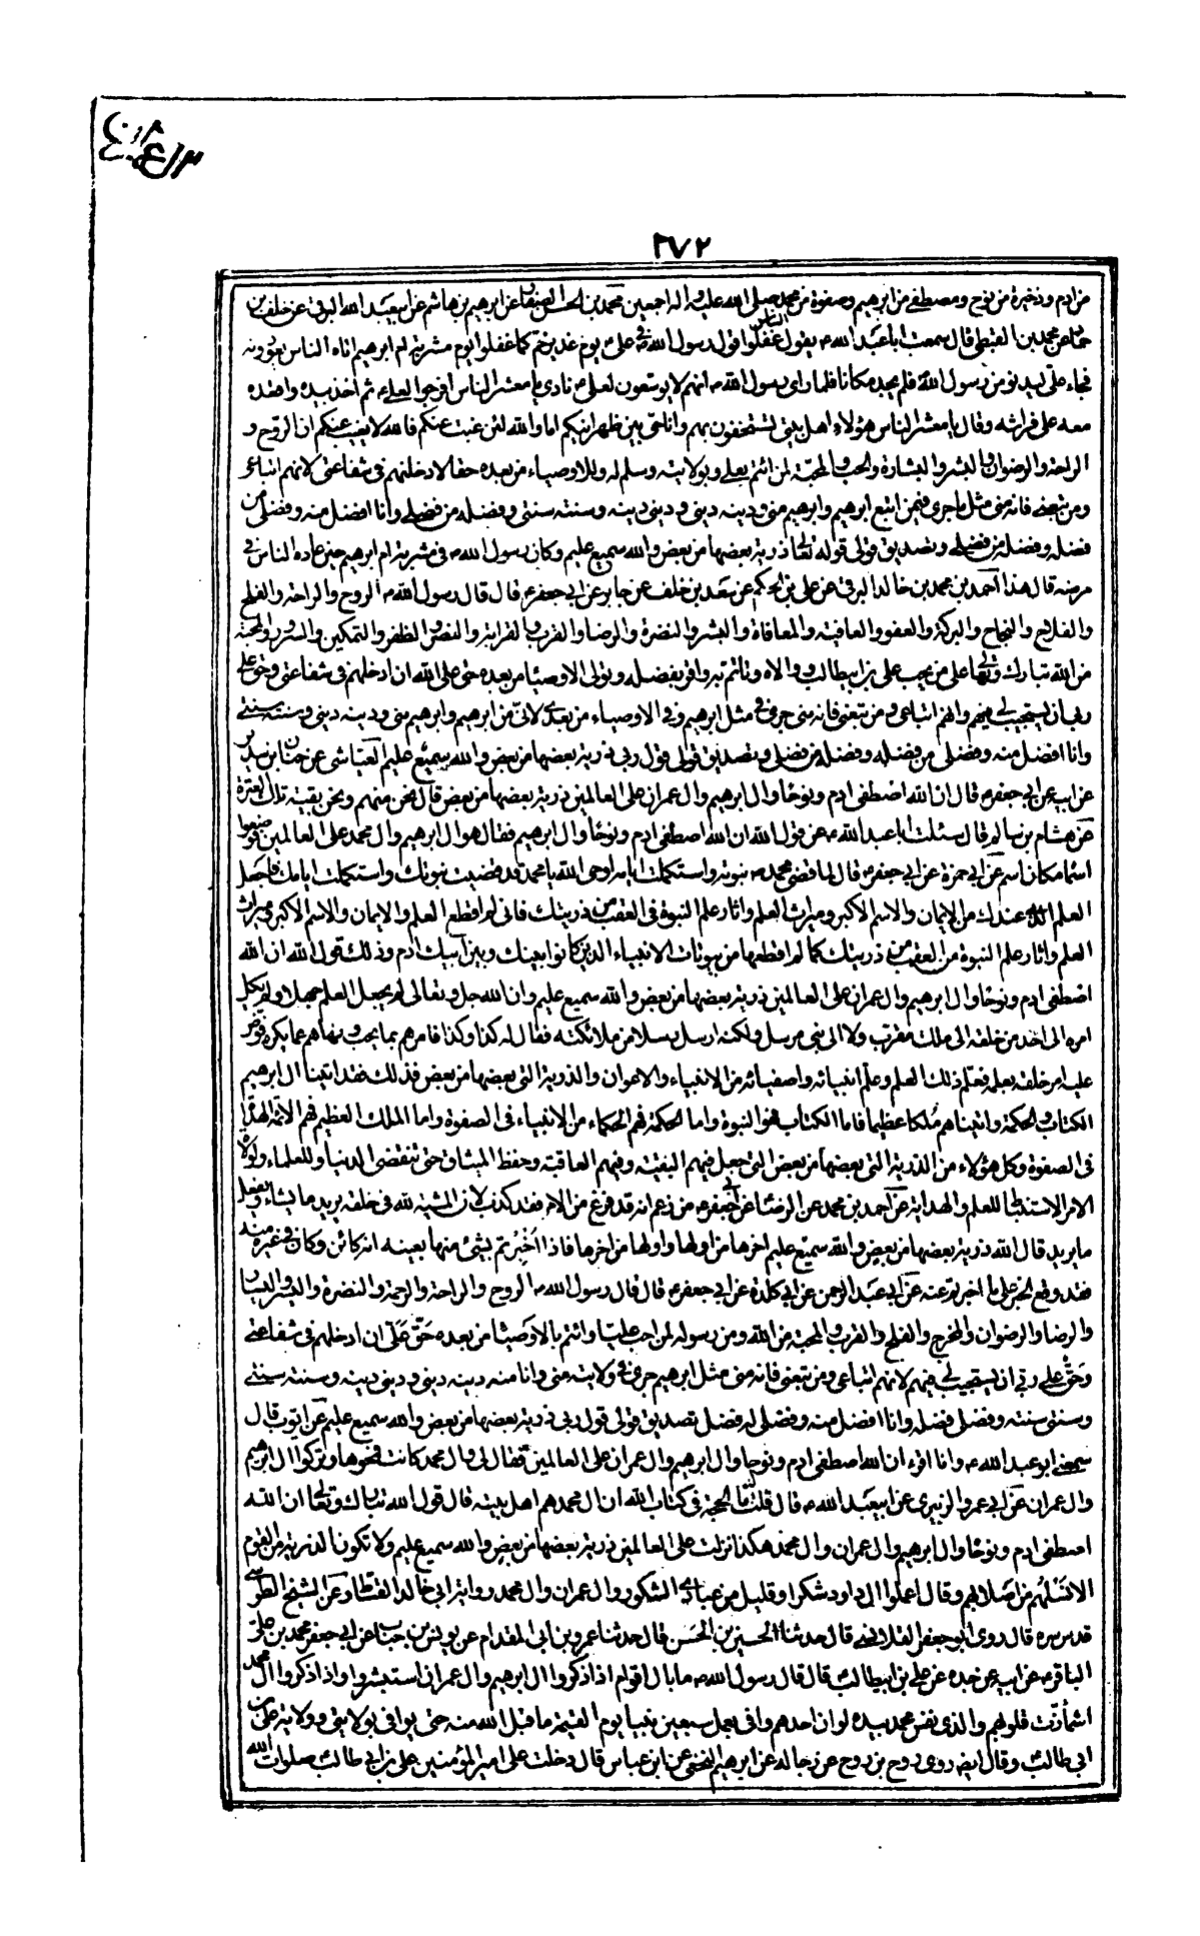 ٢٧٢
من ادم وذخيرة من نوح ومصطفى من ابرهيم وصفوة من محمد صلى الله عليه واله اجمعين محمد بن الحسن الصفار عن ابرهيم بن هاشم عن ابيعبد الله البرقى عن خلف بن
حماد عن محمد بن القبطى قال سمعت ابا عبد الله ع يقول الناس غفلوا قول رسول الله ص فى على ع يوم غدير خم كما غفلوا يوم مشربة ام ابرهيم اتاه الناس يعودونه
فجاء على ليدنو من رسول الله فلم يجد مكانا فلما راى رسول الله ص انهم لا يوسعون لعلى ع نادى يا معشر الناس افرجوا لعلى ع ثم اخذ بيده واقعده
معه على فراشه وقال يا معشر الناس هؤلاء اهل بيتى تستخفون بهم وانا حى بين ظهرانيكم اما والله لئن غبت عنكم فالله لا يغيب عنكم ان الروح و
الراحة والرضوان والبشر والبشارة والحب والمحبة لمن ائتم بعلى وبولايته وسلم له وللاوصياء من بعده حقا لادخلنهم فى شفاعتى لانهم اتباعى
ومن تبعنى فانه منى مثل ما جرى فيمن اتبع ابرهيم وابرهيم منى ودينه دينى ودينى دينه وسنته سنتى وفضله من فضلى وانا افضل منه وفضلى من
فضله وفضله من فضلى وتصديق قولى قوله تعالى ذرية بعضها من بعض والله سميع عليم وكان رسول الله ص فى مشربة ام ابرهيم حين عاده الناس فى
مرضه قال هذا احمد بن محمد بن خالد البرقى عن على بن الحكم عن سعد بن خلف عن جابر عن ابى جعفر ع قال قال رسول الله ص الروح والراحة والفلج
والفلاح والنجاح والبركة والعفو والعافية والمعافاة والبشر والنضرة والرضا والقرب والقرابة والنصر والظفر والتمكين والسرور والمحبة
من الله تبارك وتعالى على من يحب على بن ابيطالب ووالاه وائتم به واقر بفضله وتولى الاوصياء من بعده حق على الله ان ادخلهم فى شفاعتى وحق على
ربى ان يستجيب لى فيهم وانهم اتباعى ومن تبعنى فانه منى جرى فى مثل ابرهيم وفى الاوصياء من بعدى لانى من ابرهيم وابرهيم منى ودينه دينى وسنته سنتى
وانا افضل منه وفضلى من فضله وفضله من فضلى وتصديق قولى قول ربى ذرية بعضها من بعض والله سميع عليم العياشى عن حنان بن سدير
عن ابيه عن ابى جعفر ع قال ان الله اصطفى ادم ونوحا وال ابرهيم وال عمران على العالمين ذرية بعضها من بعض قال نحن منهم ونحن بقية تلك العترة
عن هشام بن سالم قال سئلت ابا عبد الله ع عن قول الله ان الله اصطفى ادم ونوحا وال ابرهيم فقال هو ال ابرهيم وال محمد على العالمين فوضعوا
اسما مكان اسم عن ابى حمزة عن ابى جعفر ع قال لما قضى محمد ص نبوته واستكملت ايامه اوحى الله يا محمد قد قضيت نبوتك واستكملت ايامك فاجعل
العلم الذى عندك من الايمان والاسم الاكبر وميراث العلم واثار علم النبوة فى العقب من ذريتك فانى لم اقطع العلم والايمان والاسم الاكبر وميراث
العلم واثار علم النبوة من العقب من ذريتك كما لم اقطعها من بيوتات الانبياء الذين كانوا بينك وبين ابيك ادم وذلك قول الله ان الله
اصطفى ادم ونوحا وال ابرهيم وال عمران على العالمين ذرية بعضها من بعض والله سميع عليم وان الله جل وتعالى لم يجعل العلم جهلا ولم يكل
امره الى احد من خلقه الى ملك مقرب ولا الى نبى مرسل ولكنه ارسل رسلا من ملائكته فقال له كذا وكذا فامرهم بما يحب ونهاهم عما يكره فقص
عليه امر خلقه بعلمه فعلم ذلك العلم وعلم انبيائه واصفيائه من الانبياء والاعوان والذرية التى بعضها من بعض فذلك فقد اتينا ال ابرهيم
الكتاب والحكمة واتيناهم ملكا عظيما فاما الكتاب فهو النبوة واما الحكمة فهم الحكماء من الانبياء فى الصفوة واما الملك العظيم فهم الائمة الهداة
فى الصفوة وكل هؤلاء من الذرية التى بعضها من بعض التى جعل فيهم البقية وفيهم العاقبة وحفظ الميثاق حتى تنقضى الدنيا وللعلماء ولولاة
الامر الاستنباط للعلم والهداية عن احمد بن محمد عن الرضا عن ابى جعفر ع من زعم انه قد فرغ من الامر فقد كذب لان المشية لله فى خلقه يريد ما يشاء ويفعل
ما يريد قال الله ذرية بعضها من بعض والله سميع عليم اخرها من اولها واولها من اخرها فاذا اخبرتم بشئ منها بعينه انه كائن وكان فى غيره منه
فقد وقع الخبر على ما اخبرتم عنه عن ابى عبد الرحمن عن ابى كلدة عن ابى جعفر ع قال قال رسول الله ص الروح والراحة والرحمة والنضرة واليسر واليسار
والرضا والرضوان والمخرج والفلج والقرب والمحبة من الله ومن رسوله لمن احب عليا وائتم بالاوصياء من بعده حق على ان ادخلهم فى شفاعتى
وحق على ربى ان يستجيب لى فيهم لانهم اتباعى ومن تبعنى فانه منى مثل ابرهيم جرى فى ولايته منى وانا منه دينه دينى ودينى دينه وسنته سنتى
وسنتى سنته وفضلى فضله وانا افضل منه وفضلى له فضل تصديق قولى قول ربى ذرية بعضها من بعض والله سميع عليم عن ايوب قال
سمعنى ابو عبد الله ع وانا اقرء ان الله اصطفى ادم ونوحا وال ابرهيم وال عمران على العالمين فقال لى وال محمد كانت فمحوها وتركوا ال ابرهيم
وال عمران عن ابى عمرو الزبيرى عن ابيعبد الله ع قال قلت له ما الحجة فى كتاب الله ان ال محمد هم اهل بيته قال قول الله تبارك وتعالى ان الله
اصطفى ادم ونوحا وال ابرهيم وال عمران وال محمد هكذا نزلت على العالمين ذرية بعضها من بعض والله سميع عليم ولا تكون الذرية من القوم
الا نسلهم من اصلابهم وقال اعملوا ال داود شكرا وقليل من عبادى الشكور وال عمران وال محمد رواية ابى خالد القماط وعن الشيخ الطوسى
قدس سره قال روى ابو جعفر القلانسى قال حدثنا الحسين بن الحسن قال حدثنا عمرو بن ابى المقدام عن يونس بن حباب عن ابى جعفر محمد بن على
الباقر ع عن ابيه عن جده عن على بن ابيطالب قال قال رسول الله ص ما بال اقوام اذا ذكروا ال ابرهيم وال عمران استبشروا واذا ذكروا ال محمد
اشمأزت قلوبهم والذى نفس محمد بيده لو ان احدهم وافى بعمل سبعين نبيا يوم القيمة ما قبل الله منه حتى يوافى بولايتى وولاية على بن
ابى طالب وقال ايضا روى روح بن روح عن رجاله عن ابرهيم النخعى عن ابن عباس قال دخلت على امير المؤمنين على بن ابى طالب صلوات الله